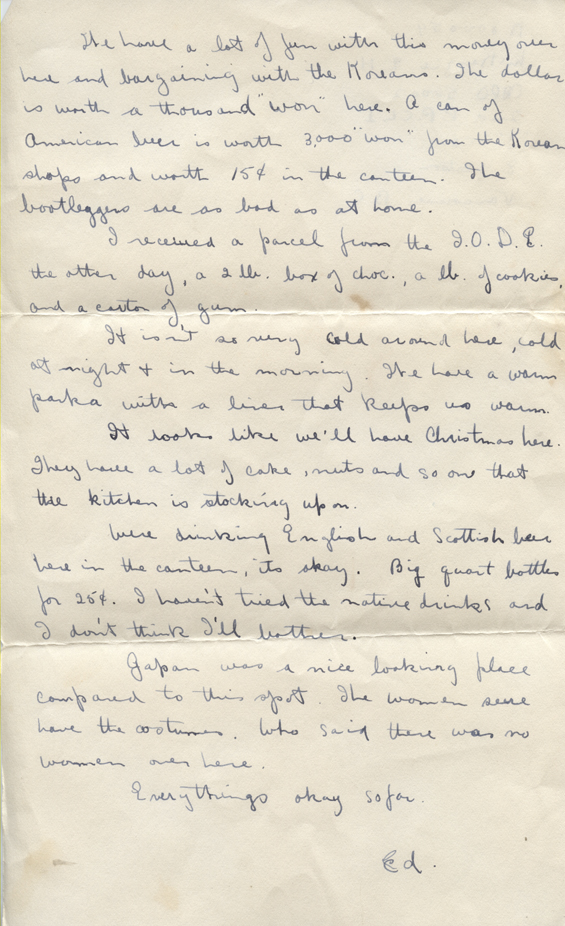 We have a lot of fun with this money over
here and bargaining with the Koreans. The dollar
is worth a thousand "won" here. A can of
American beer is worth 3,000 "won" from the Korean
shops and worth 15¢ in the canteen. The
bootleggers are as bad as at home.
I received a parcel from the I.O.D.E.
the other day, a 2 lb. box of choc., a lb. of cookies,
and a carton of gum.
It isn't so very cold around here, cold
at night & in the morning. We have a warm
parka with a liner that keeps us warm.
It looks like we'll have Christmas here.
They have a lot of cake, nuts and so on that
the kitchen is stocking up on.
We're drinking English and Scottish beer
here in the canteen, its okay. Big quart bottles
for 25¢. I haven't tried the native drinks and
I don't think I'll bother.
Japan was a nice looking place
compared to this spot. The women sure
have the costumes. Who said there was no
women over here.
Everythings okay so far.
Ed.